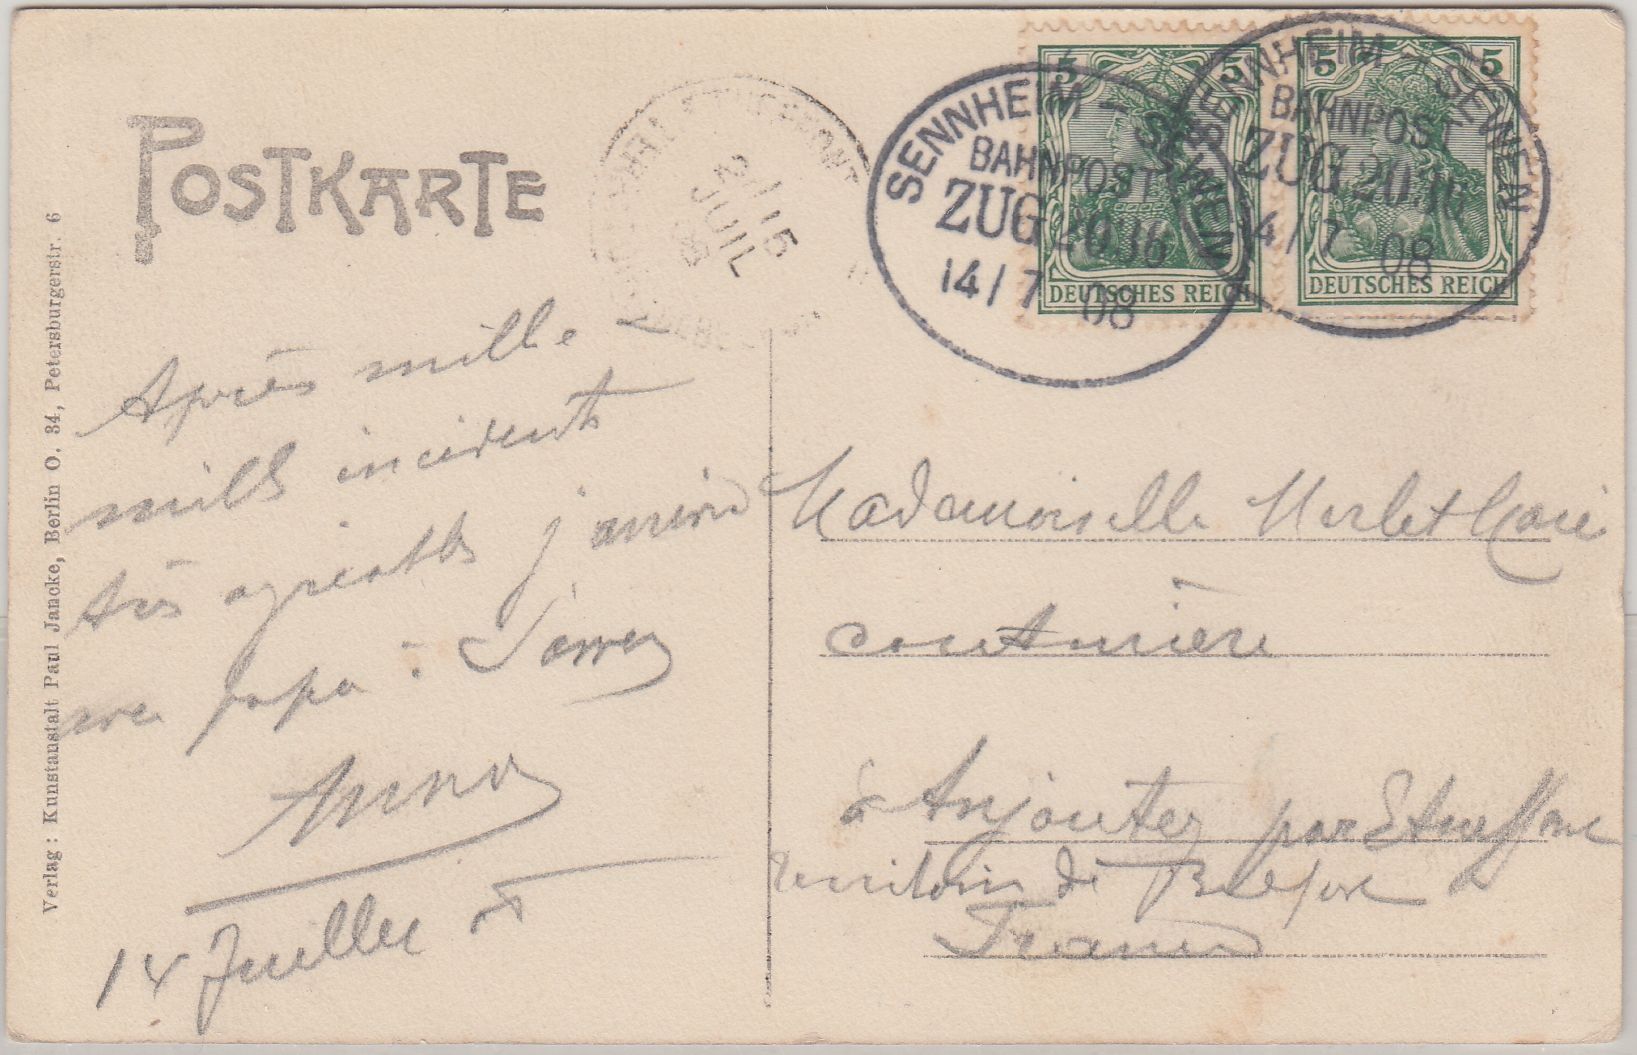 POSTKARTE
Verlag: Kunstanstalt Paul Jancke, Berlin O. 34, Petersburgerstr. 6
5 5
DEUTSCHES REICH
5 5
DEUTSCHES REICH
SENNHEIM - SEWEN
BAHNPOST
ZUG 20.16
14/7 08
SENNHEIM - SEWEN
BAHNPOST
ZUG 20.16
14/7 08
2/15
JUIL
08
Après mille
mille incidents
très agréables j'arrive
papa à
Anna
14 Juillet
Mademoiselle Merlet Marie
couturière
à Anjoutey par Etueffont
territoire de Belfort
France